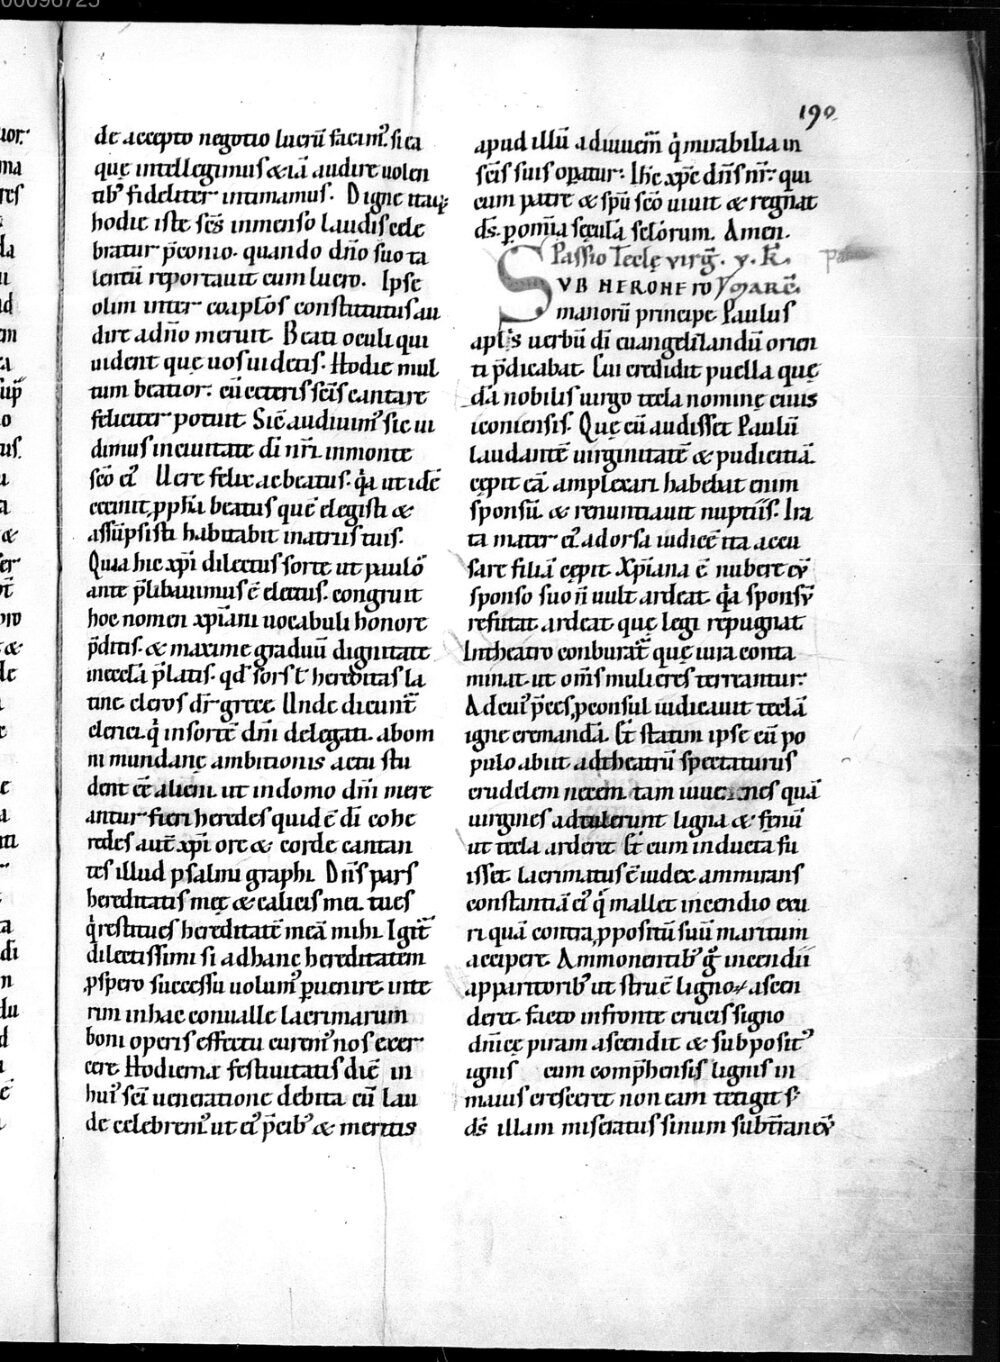 00098725
190
de accepto negotio lucrū faciam᷒. si ea
quę intellegimus & iā audire uolen
tib᷒ fideliter intimamus. Digne itaq;
hodie iste sēs inmenso laudis cele
bratur p̄conio. quando dn̄o suo ta
lentū reportauit cum lucro. Ipse
olim inter coap̄los constitutus au
dire adn̄o meruit. Beati oculi qui
uident quę uos uidetis. Hodie mul
tum beatior. cū ceteris sēis cantare
feliciter potuit. Sic̄ audiuim᷒ sic ui
dimus inciuitate dī nr̄i. inmonte
sēo ei᷒ Uere felix ac beatus. q̇a ut idē
cecinit ꝓph̄a beatus quē elegisti &
assūpsisti habitabit inatriis tuis.
Quia hic xp̄i dilectus sorte ut paulō
ante p̄libauimus ē electus. congruit
hoc nomen xp̄iani uocabuli honore
p̄ditis. & maxime graduū dignitate
inecclā p̄latis. qd̄ sors t̄ hereditas la
tine. cleros dr̄ grece. Unde dicunt̄
clerici. q̇ insortē dn̄i delegati. abom
ni mundanę ambitionis actu stu
dent ēē alieni. ut indomo dn̄i mere
antur fieri heredes quidē dī cohe
redes aut̄ xp̄i ore & corde cantan
tes illud psalmigraphi. Dn̄s pars
hereditatis meę & calicis mei. tu es
q̇ restitues hereditatē meā mihi. Igit̄
dilectissimi si adhanc hereditatem
ꝓspero successu uolum᷒ ꝑuenire inte
rim inhac conualle lacrimarum
boni operis effectu curem᷒ nos exer
cere. Hodiernę festiuitatis diē in
hui᷒ sēi ueneratione debita cū lau
de celebrem᷒ ut ei᷒ p̄cib᷒ & meritis
apud illū adiuuem̄ q̇ mirabilia in
sēis suis opatur. Ihc xp̄c dn̄s nr̄. qui
cum patre & sp̄u sēo uiuit & regnat
ds̄. ꝑ omīa sęcula sclōrum. Amen.
Passio Teclę virḡ. v. K.
SVB NERONE RO
manorū principe. Paulus
apl̄s uerbū dī euangelilandū orien
ti p̄dicabat. Cui credidit puella quę
dā nobilis uirgo tecla nomine ciuis
iconiensis. Quę cū audisset Paulū
laudantē uirginitatē & pudicitiā.
cępit eā amplexari habebat enim
sponsū. & renuntiauit nuptiis. Ira
ta mater ei᷒ adorsa iudicē ita accu
sare filiā cępit. Xp̄iana ē nubere
sponso suo n̄ uult ardeat. q̇a sponsū
refutat ardeat quę legi repugnat
Intheatro conburat̄ quę iura conta
minat. ut om̄s mulieres terreantur.
Ad cui᷒ p̄ces, ꝓconsul iudicauit teclā
igne cremandā. Et statim ipse cū po
pulo abiit adtheatrū spectaturus
crudelem necem. tam iuuenes quā
uirgines adtulerunt ligna & fęnū
ut tecla arderet. Et cum inducta fu
isset. lacrimatus ē iudex ammirans
constantiā ei᷒ q̇ mallet incendio exu
ri quā contra ꝓpositū suū maritum
accipere. Ammonentib᷒ g̊ incendii
apparitorib᷒ ut struē lignoꝝ ascen
deret. facto infronte crucis signo
dn̄icę piram ascendit & subposit᷒
ignis cum comp̄hensis lignis in
maius cresceret non eam tetigit s;
ds̄ illam miseratus sinum